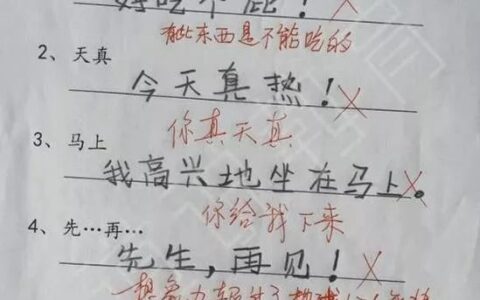 好吃个屁！
有些东西是不能吃的
2、天真
今天真热！
你真天真
3、马上
我高兴地坐在马上。
你给我下来
4、先…再…
先生，再见！
想象力